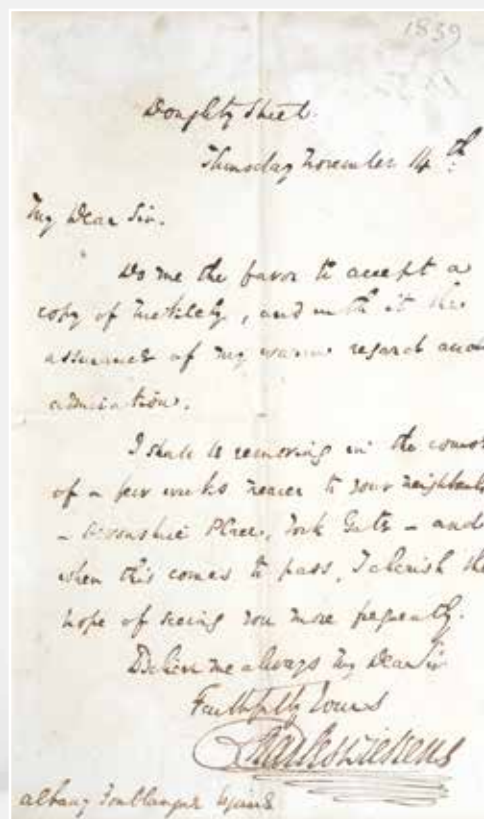 1839
Doughty Street.
Thursday November 14th.
My Dear Sir.
Do me the favor to accept a
copy of Nickleby, and with it the
assurance of my warm regard and
admiration.
I shall be removing in the course
of a few weeks nearer to your neighbour
- Devonshire Place, York Gate - and
when this comes to pass, I cherish the
hope of seeing you more frequently.
Believe me always My Dear Sir
Faithfully Yours
Charles Dickens
Albany Fonblanque Esquire